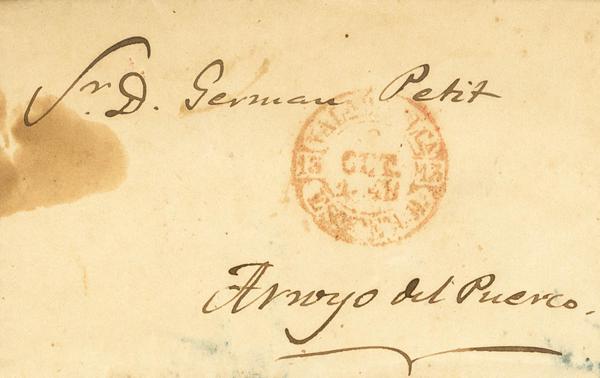 Sr. D. German Petit
13 OCT. 13
Arroyo del Puerco.